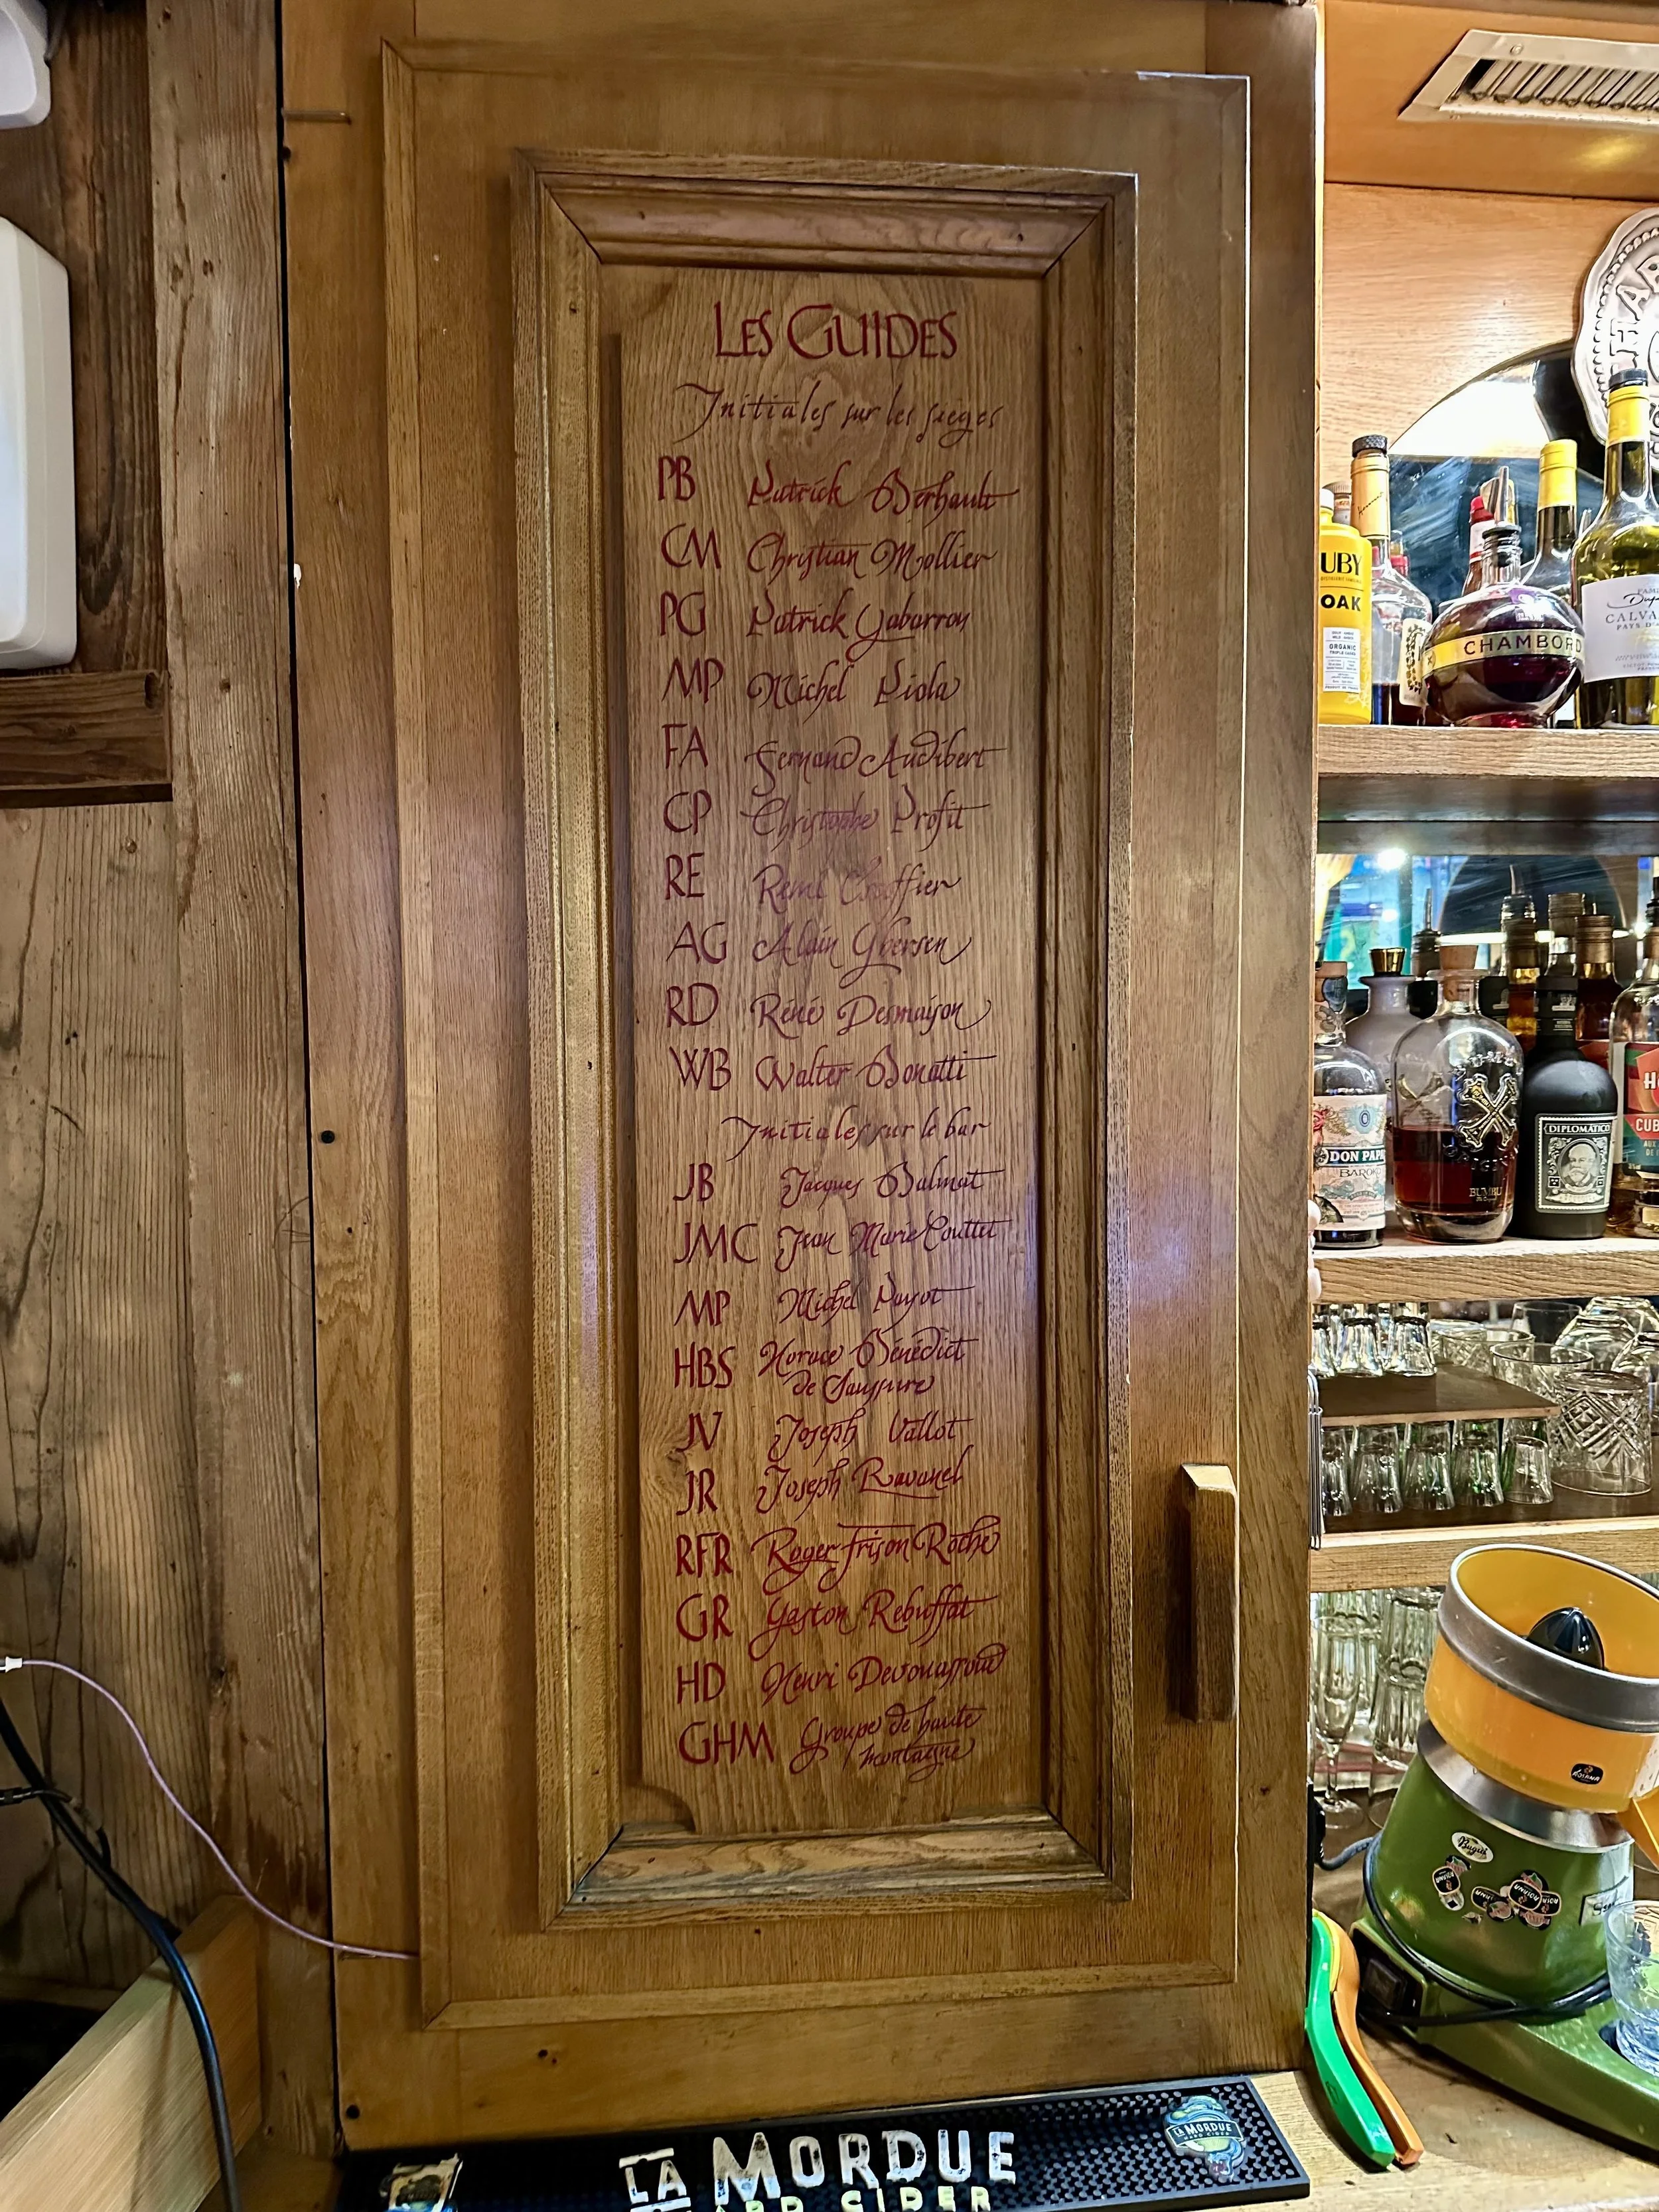 LES GUIDES
Initiales sur les sièges
PB Patrick Berhault
CM Christian Mollier
PG Patrick Gabarrou
MP Michel Piola
FA Fernand Audibert
CP Christophe Profit
RE Rémi Escoffier
AG Alain Ghersen
RD Réné Desmaison
WB Walter Bonatti
Initiales sur le bar
JB Jacques Balmat
JMC Jean Marie Couttet
MP Michel Payot
HBS Horace Bénédict
de Saussure
JV Joseph Vallot
JR Joseph Ravanel
RFR Roger Frison Rothe
GR Gaston Rébuffat
HD Henri Devouassoud
GHM Groupe de haute
montagne
UBY
OAK
ORGANIC
CHAMBORD
CALVA
PAYS D'A
DON PAPA
BAROKO
BUMBU
DIPLOMÁTICO
CUB
Bugat
LA MORDUE
HARD CIDER
LA MORDUE
HARD CIDER